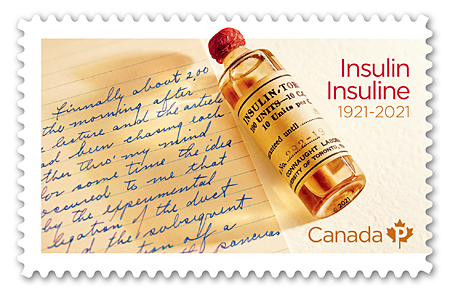 Finnally about 2,00
in the morning after
the lecture and the article
had been chasing each
other thro' my mind
for some time the idea
occured to me that
by the experimental
ligation of the duct
and the subsequent
of a
the pancreas
INSULIN-TORO
10 Units per c
CONNAUGHT LABORA
UNIVERSITY OF TORONTO,
2021
Insulin
Insuline
1921-2021
Canada P